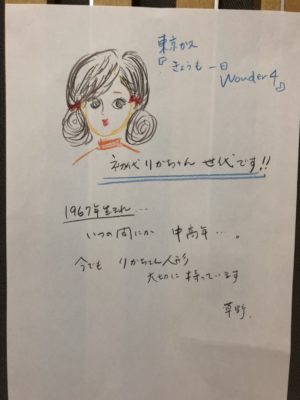 東京ガス
『きょうも一日
Wonder4』
初代りかちゃん世代です!!
1967年生まれ…
いつの間にか 中高年…。
今でも りかちゃん人形
大切に持っています
草野.